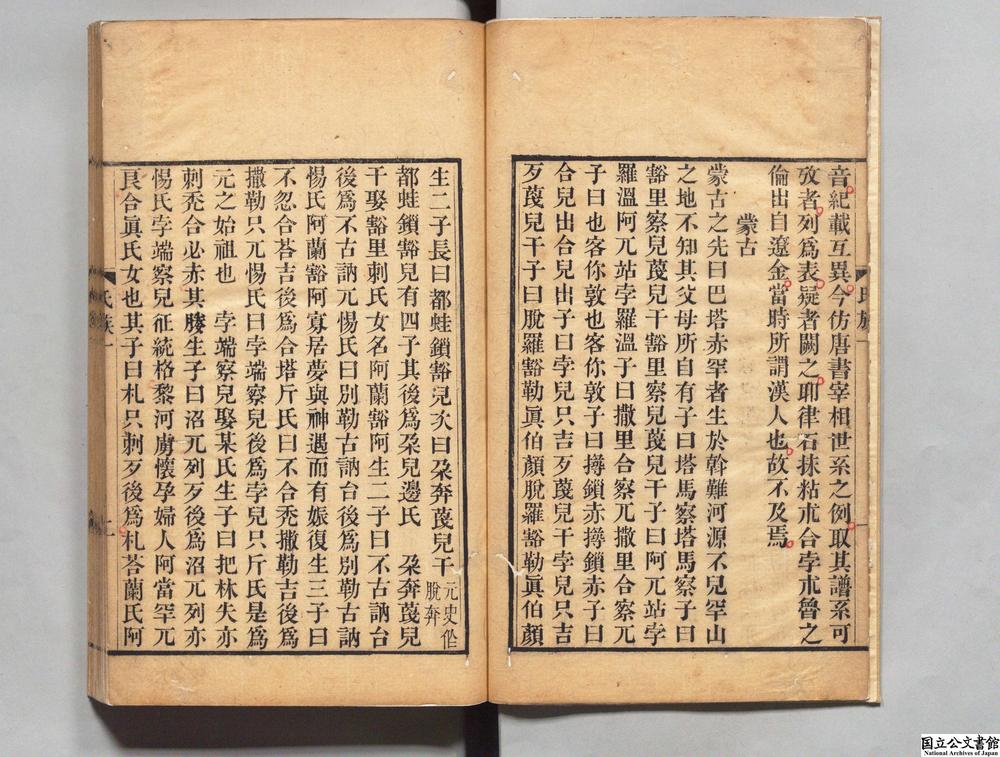 音紀載互異今仿唐書宰相世系之例取其譜系可
攷者列爲表疑者闕之耶律石抹粘朮合孛朮魯之
倫出自遼金當時所謂漢人也故不及焉
蒙古
蒙古之先曰巴塔赤罕者生於斡難河源不兒罕山
之地不知其父母所自有子曰塔馬察塔馬察子曰
豁里察兒蔑兒干豁里察兒蔑兒干子曰阿兀站孛
羅溫阿兀站孛羅溫子曰撒里合察兀撒里合察兀
子曰也客你敦也客你敦子曰撏鎖赤撏鎖赤子曰
合兒出合兒出子曰孛兒只吉歹蔑兒干孛兒只吉
歹蔑兒干子曰脫羅豁勒眞伯顏脫羅豁勒眞伯顏
氏族一
生二子長曰都蛙鎖豁兒次曰朶奔蔑兒干元史作脫奔
都蛙鎖豁兒有四子其後爲朶兒邊氏 朶奔蔑兒
干娶豁里剌氏女名阿蘭豁阿生二子曰不古訥台
後爲不古訥兀惕氏曰別勒古訥台後爲別勒古訥
惕氏阿蘭豁阿寡居夢與神遇而有娠復生三子曰
不忽合荅吉後爲合塔斤氏曰不合禿撒勒吉後爲
撒勒只兀惕氏曰孛端察兒後爲孛兒只斤氏是爲
元之始祖也 孛端察兒娶某氏生子曰把林失亦
剌禿合必赤其媵生子曰沼兀列歹後爲沼兀列亦
惕氏孛端察兒征統格黎河虜懷孕婦人阿當罕兀
良合眞氏女也其子曰札只剌歹後爲札荅蘭氏阿
国立公文書館
National Archives of Japan